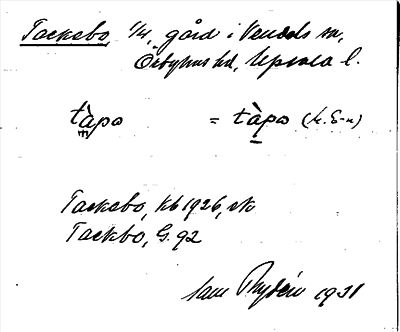 Tackebo, 1/4, gård i Vendels sn,
Örbyhus hd, Upsala l.
tàpo = tàpo (k. E-n)
Tackebo, kb 1926, sk
Tackbo, G. 92
Sam Rydén 1931